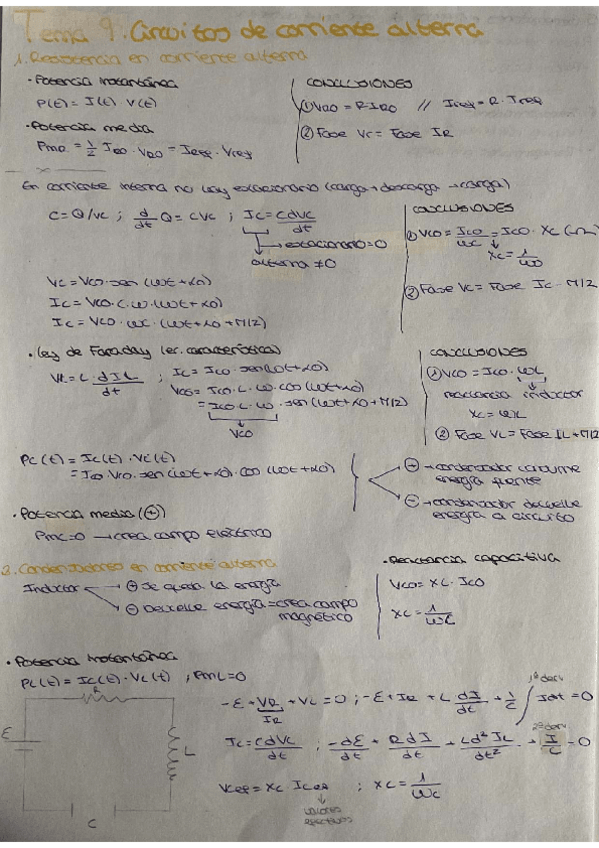 Tema 9. Circuitos de corriente alterna
1. Resistencia en corriente alterna
· Potencia instantánea
P(t) = I(t) · V(t)
· Potencia media
PmR = 1/2 IRO · VRO = Ieff · Veff
CONCLUSIONES
① VRO = R·IRO // 
② Fase Vr = Fase IR
En corriente interna no hay estacionario (carga → descarga → carga)
C = Q/Vc ; d/dt Q = CVC ; IC = C dVC/dt
→ estacionario = 0
alterna ≠ 0
VC = VCO · sen (ωt + αo)
IC = VCO · C · ω · (ωt + αo)
IC = VCO · ωC · (ωt + αo + π/2)
CONCLUSIONES
① VCO = ICO/ωC = ICO · XC
② Fase VC = Fase IC - π/2
· Ley de Faraday (ec. característica)
VL = L · dIL/dt ; IL = ILO · sen(ωt + αo)
= ILO · L · ω · sen (ωt + αo + π/2)
VLO
CONCLUSIONES
reactancia inductor
XL = ωL
② Fase VL = Fase IL + π/2
PC(t) = IC(t) · VC(t)
= IO · VCO · sen(ωt + αo) · cos (ωt + αo)
⊕ → condensador consume energía fuente
⊖ → condensador devuelve energía a circuito
· Potencia media (+)
PmC = 0 → crea campo eléctrico
2. Condensadores en corriente alterna
Inductor
⊕ Se queda la energía
⊖ Devuelve energía = crea campo magnético
· Reactancia capacitiva
VCO = XC · ICO
XC = 1/ωC
· Potencia instantánea
PL(t) = IL(t) · VL(t) ; PmL = 0
R
ε
L
C
1ª deriv
-ε + VR + VL = 0 ; -ε + IR + L dI/dt + 1/C ∫ Idt = 0
IR
2ª deriv
IC = C dVC/dt ; -dε/dt + R dI/dt + L d²IL/dt² + I/C = 0
VCeff = XC · ICeff ; XC = 1/ωC
valores
efectivos